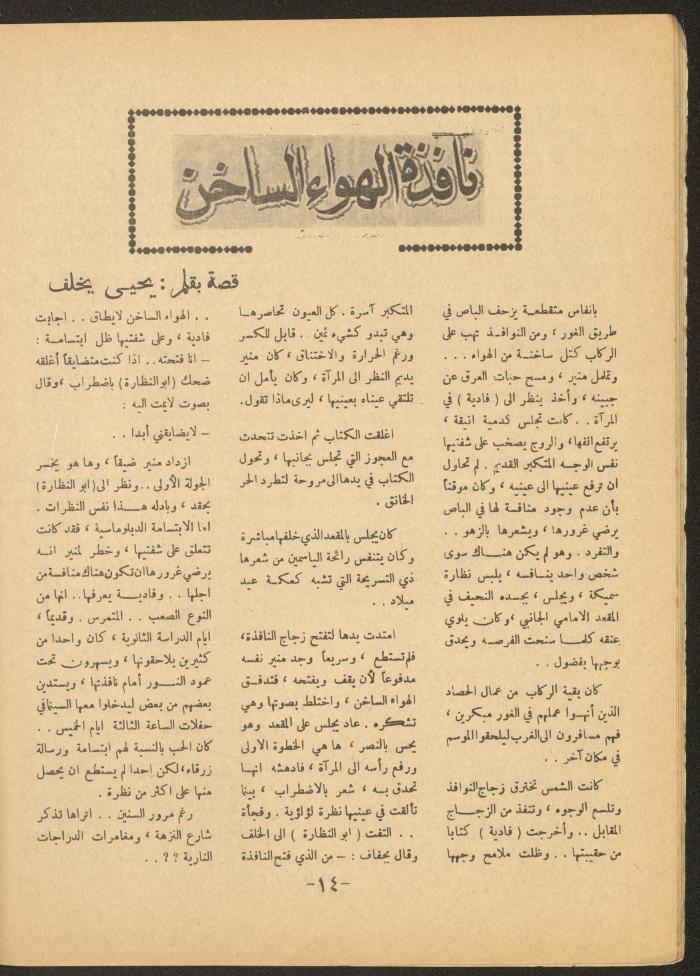 نافذة الهواء الساخن
قصة بقلم : يحيى يخلف
بانفاس متقطعة يزحف الباص في
طريق الغور ، ومن النوافذ تهب على
الركاب كتل ساخنة من الهواء . . .
وتململ منير ، ومسح حبات العرق عن
جبينه ، وأخذ ينظر الى ( فادية ) في
المرآة . . كانت تجلس كدمية انيقة ،
يرتفع انفها، والروج يصخب على شفتيها
نفس الوجه المتكبر القديم . لم تحاول
ان ترفع عينيها الى عينيه ، وكان موقناً
بأن عدم وجود منافسة لها في الباص
يرضي غرورها ، ويشعرها بالزهو . .
والتفرد . وهو لم يكن هناك سوى
شخص واحد ينافسه ، يلبس نظارة
سميكة ، ويجلس ، بجسده النحيف في
المقعد الامامي الجانبي ، وكان يلوي
عنقه كلما سنحت الفرصه ويحدق
بوجهها بفضول . .
كان بقية الركاب من عمال الحصاد
الذين أنهوا عملهم في الغور مبكرين ،
فهم مسافرون الى الغرب ليلحقوا الموسم
في مكان آخر . .
كانت الشمس تخترق زجاج النوافذ
وتلسع الوجوه ، وتنفذ من الزجاج
المقابل . . وأخرجت ( فادية ) كتابا
من حقيبتها . . وظلت ملامح وجهها
المتكبر آسرة . كل العيون تحاصرها
وهي تبدو كشيء ثمين . قابل للكسر
ورغم الحرارة والاختناق ، كان منير
يديم النظر الى المرآة ، وكان يأمل ان
تلتقي عيناه بعينيها ، ليرى ماذا تقول.
اغلقت الكتاب ثم اخذت تتحدث
مع العجوز التي تجلس بجانبها ، وتحول
الكتاب في يدها الى مروحة لتطرد الحر
الخانق .
كان يجلس بالمقعد الذي خلفها مباشرة
وكان يتنفس رائحة الياسمين من شعرها
ذي التسريحة التي تشبه كعكة عيد
ميلاد . .
امتدت يدها لتفتح زجاج النافذة،
فلم تستطع ، وسريعاً وجد منير نفسه
مدفوعاً لأن يقف ويفتحه ، فتدفق
الهواء الساخن ، واختلط بصوتها وهي
تشكره . عاد يجلس على المقعد وهو
يحس بالنصر ، ها هي الخطوة الاولى
ورفع رأسه الى المرآة ، فادهشه انها
تحدق به ، شعر بالاضطراب ، بينما
تألقت في عينيها نظرة لؤلؤية . وفجأة
. . التفت ( ابو النظارة ) الى الخلف
وقال بجفاف : — من الذي فتح النافذة
. . الهواء الساخن لايطاق . . اجابت
فادية ، وعلى شفتيها ظل ابتسامة :
— انا فتحته . . اذا كنت متضايقاً أغلقه
ضحك (ابو النظارة) باضطراب ، وقال
بصوت لايمت اليه :
— لايضايقني أبدا . .
ازداد منير ضيقاً ، وها هو يخسر
الجولة الأولى . . ونظر الى (ابو النظارة)
بحقد ، وبادله هذا نفس النظرات .
اما الابتسامة الدبلوماسية ، فقد كانت
تتعلق على شفتيها ، وخطر لمنير انه
يرضي غرورها ان تكون هناك منافسة من
اجلها . . وفادية يعرفها . . انها من
النوع الصعب . . المتمرس . وقديماً ،
ايام الدراسة الثانوية ، كان واحدا من
كثيرين يلاحقونها ، ويسهرون تحت
عمود النور أمام نافذتها ، ويستدين
بعضهم من بعض ليدخلوا معها السينما في
حفلات الساعة الثالثة ايام الخميس . .
كان الحب بالنسبة لهم ابتسامة ورسالة
زرقاء، لكن احدا لم يستطع ان يحصل
منها على اكثر من نظرة .
رغم مرور السنين . . اتراها تذكر
شارع النزهة ، ومغامرات الدراجات
النارية ؟؟ . .
-١٤-